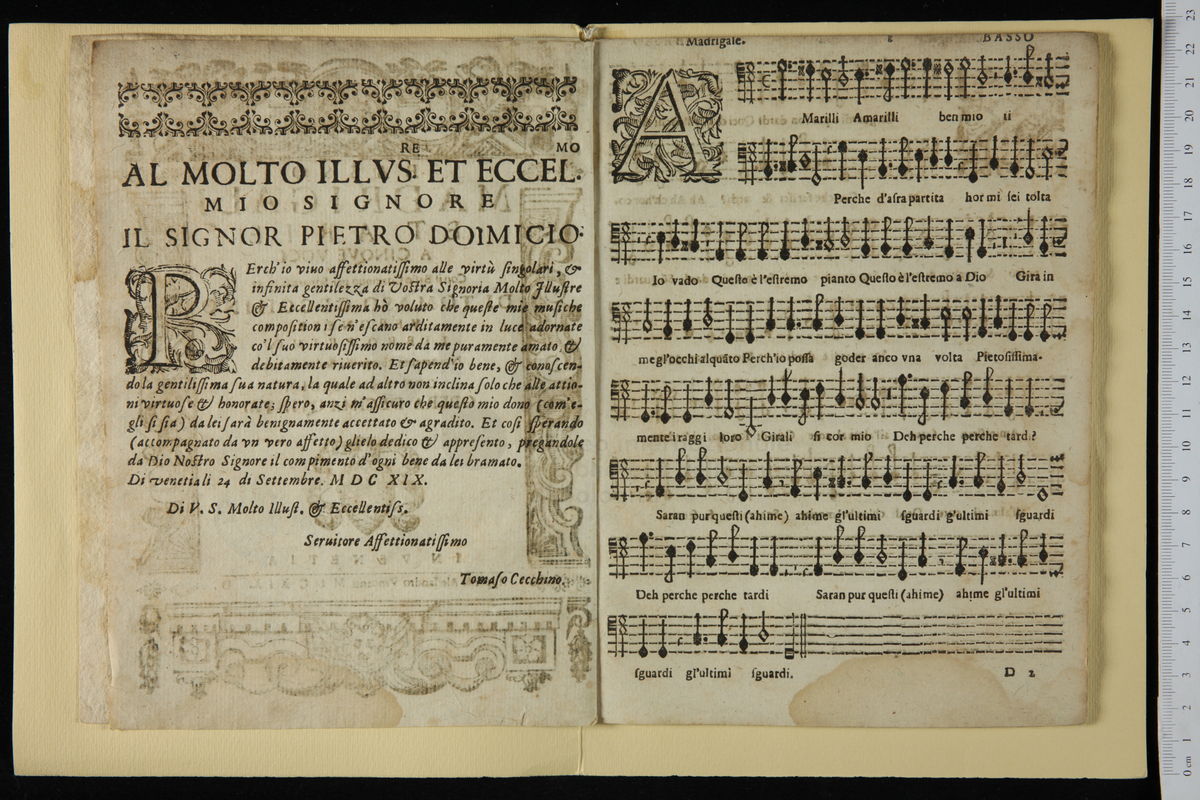 RE MO
AL MOLTO ILLVS: ET ECCEL.
MIO SIGNORE
IL SIGNOR PIETRO DOIMICIO.
PErch'io viuo affettionatiſſimo alle virtù ſingolari, &
infinita gentilezza di Voſtra Signoria Molto Illuſtre
& Eccellentiſſima hò voluto che queſte mie muſiche
compoſitioni ſe n'eſcano arditamente in luce adornate
co'l ſuo virtuoſiſſimo nome da me puramente amato &
debitamente riuerito. Et ſapend'io bene, & conoſcen-
do la gentiliſſima ſua natura, la quale ad altro non inclina ſolo che alle attio-
ni virtuoſe & honorate; ſpero, anzi m'aſſicuro che queſto mio dono (com'e-
gli ſi ſia) da lei ſarà benignamente accettato & agradito. Et coſi ſperando
(accompagnato da vn vero affetto) glielo dedico & appreſento, pregandole
da Dio Noſtro Signore il compimento d'ogni bene da lei bramato.
Di Venetia li 24 di Settembre. M D C XIX.
Di V. S. Molto Illuſt. & Eccellentiſs.
Seruitore Affettionatiſſimo
Tomaſo Cecchino.
Madrigale. BASSO
AMarilli Amarilli ben mio ti
Perche d'aſra partita hor mi ſei tolta
Io vado Queſto è l'eſtremo pianto Queſto è l'eſtremo a Dio Gira in
me gl'occhi alquãto Perch'io poſſa goder anco vna volta Pietoſiſſima-
mente i raggi loro Girali ſi cor mio Deh perche perche tard?
Saran pur queſti (ahime) ahime gl'ultimi ſguardi g'ultimi ſguardi
Deh perche perche tardi Saran pur queſti (ahime) ahime gl'ultimi
ſguardi gl'ultimi ſguardi.
D 2
0 cm 1 2 3 4 5 6 7 8 9 10 11 12 13 14 15 16 17 18 19 20 21 22 23